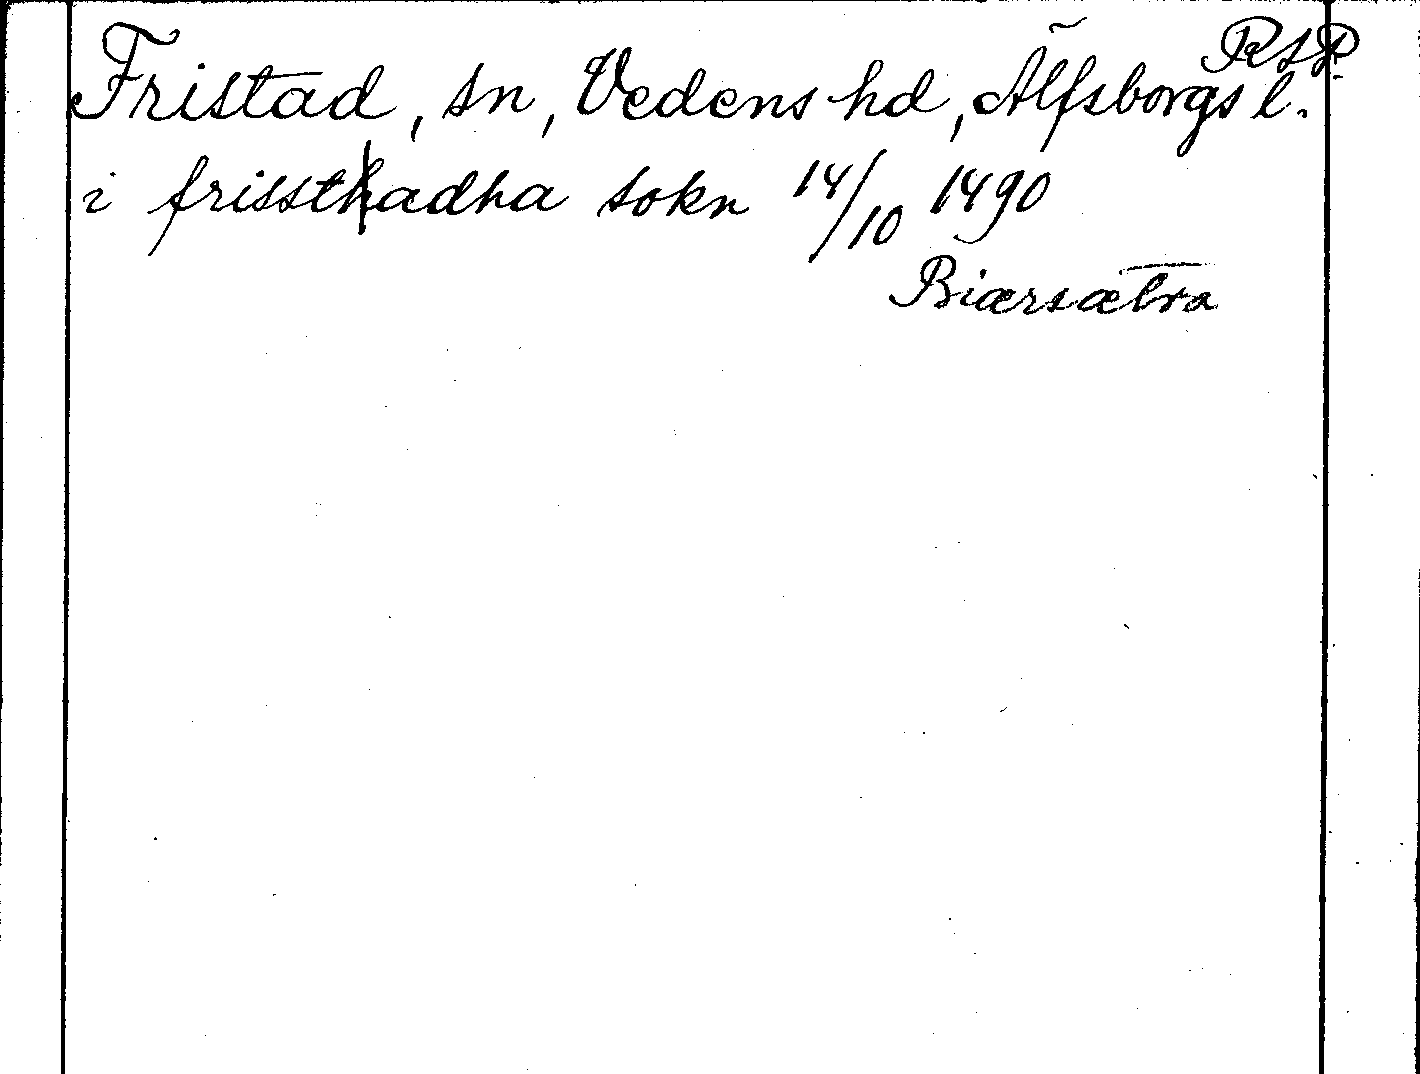 RSP
Fristad, sn, Vedens hd, Älfsborgs l.
i frissthadha sokn 14/10 1490
Biærsætra